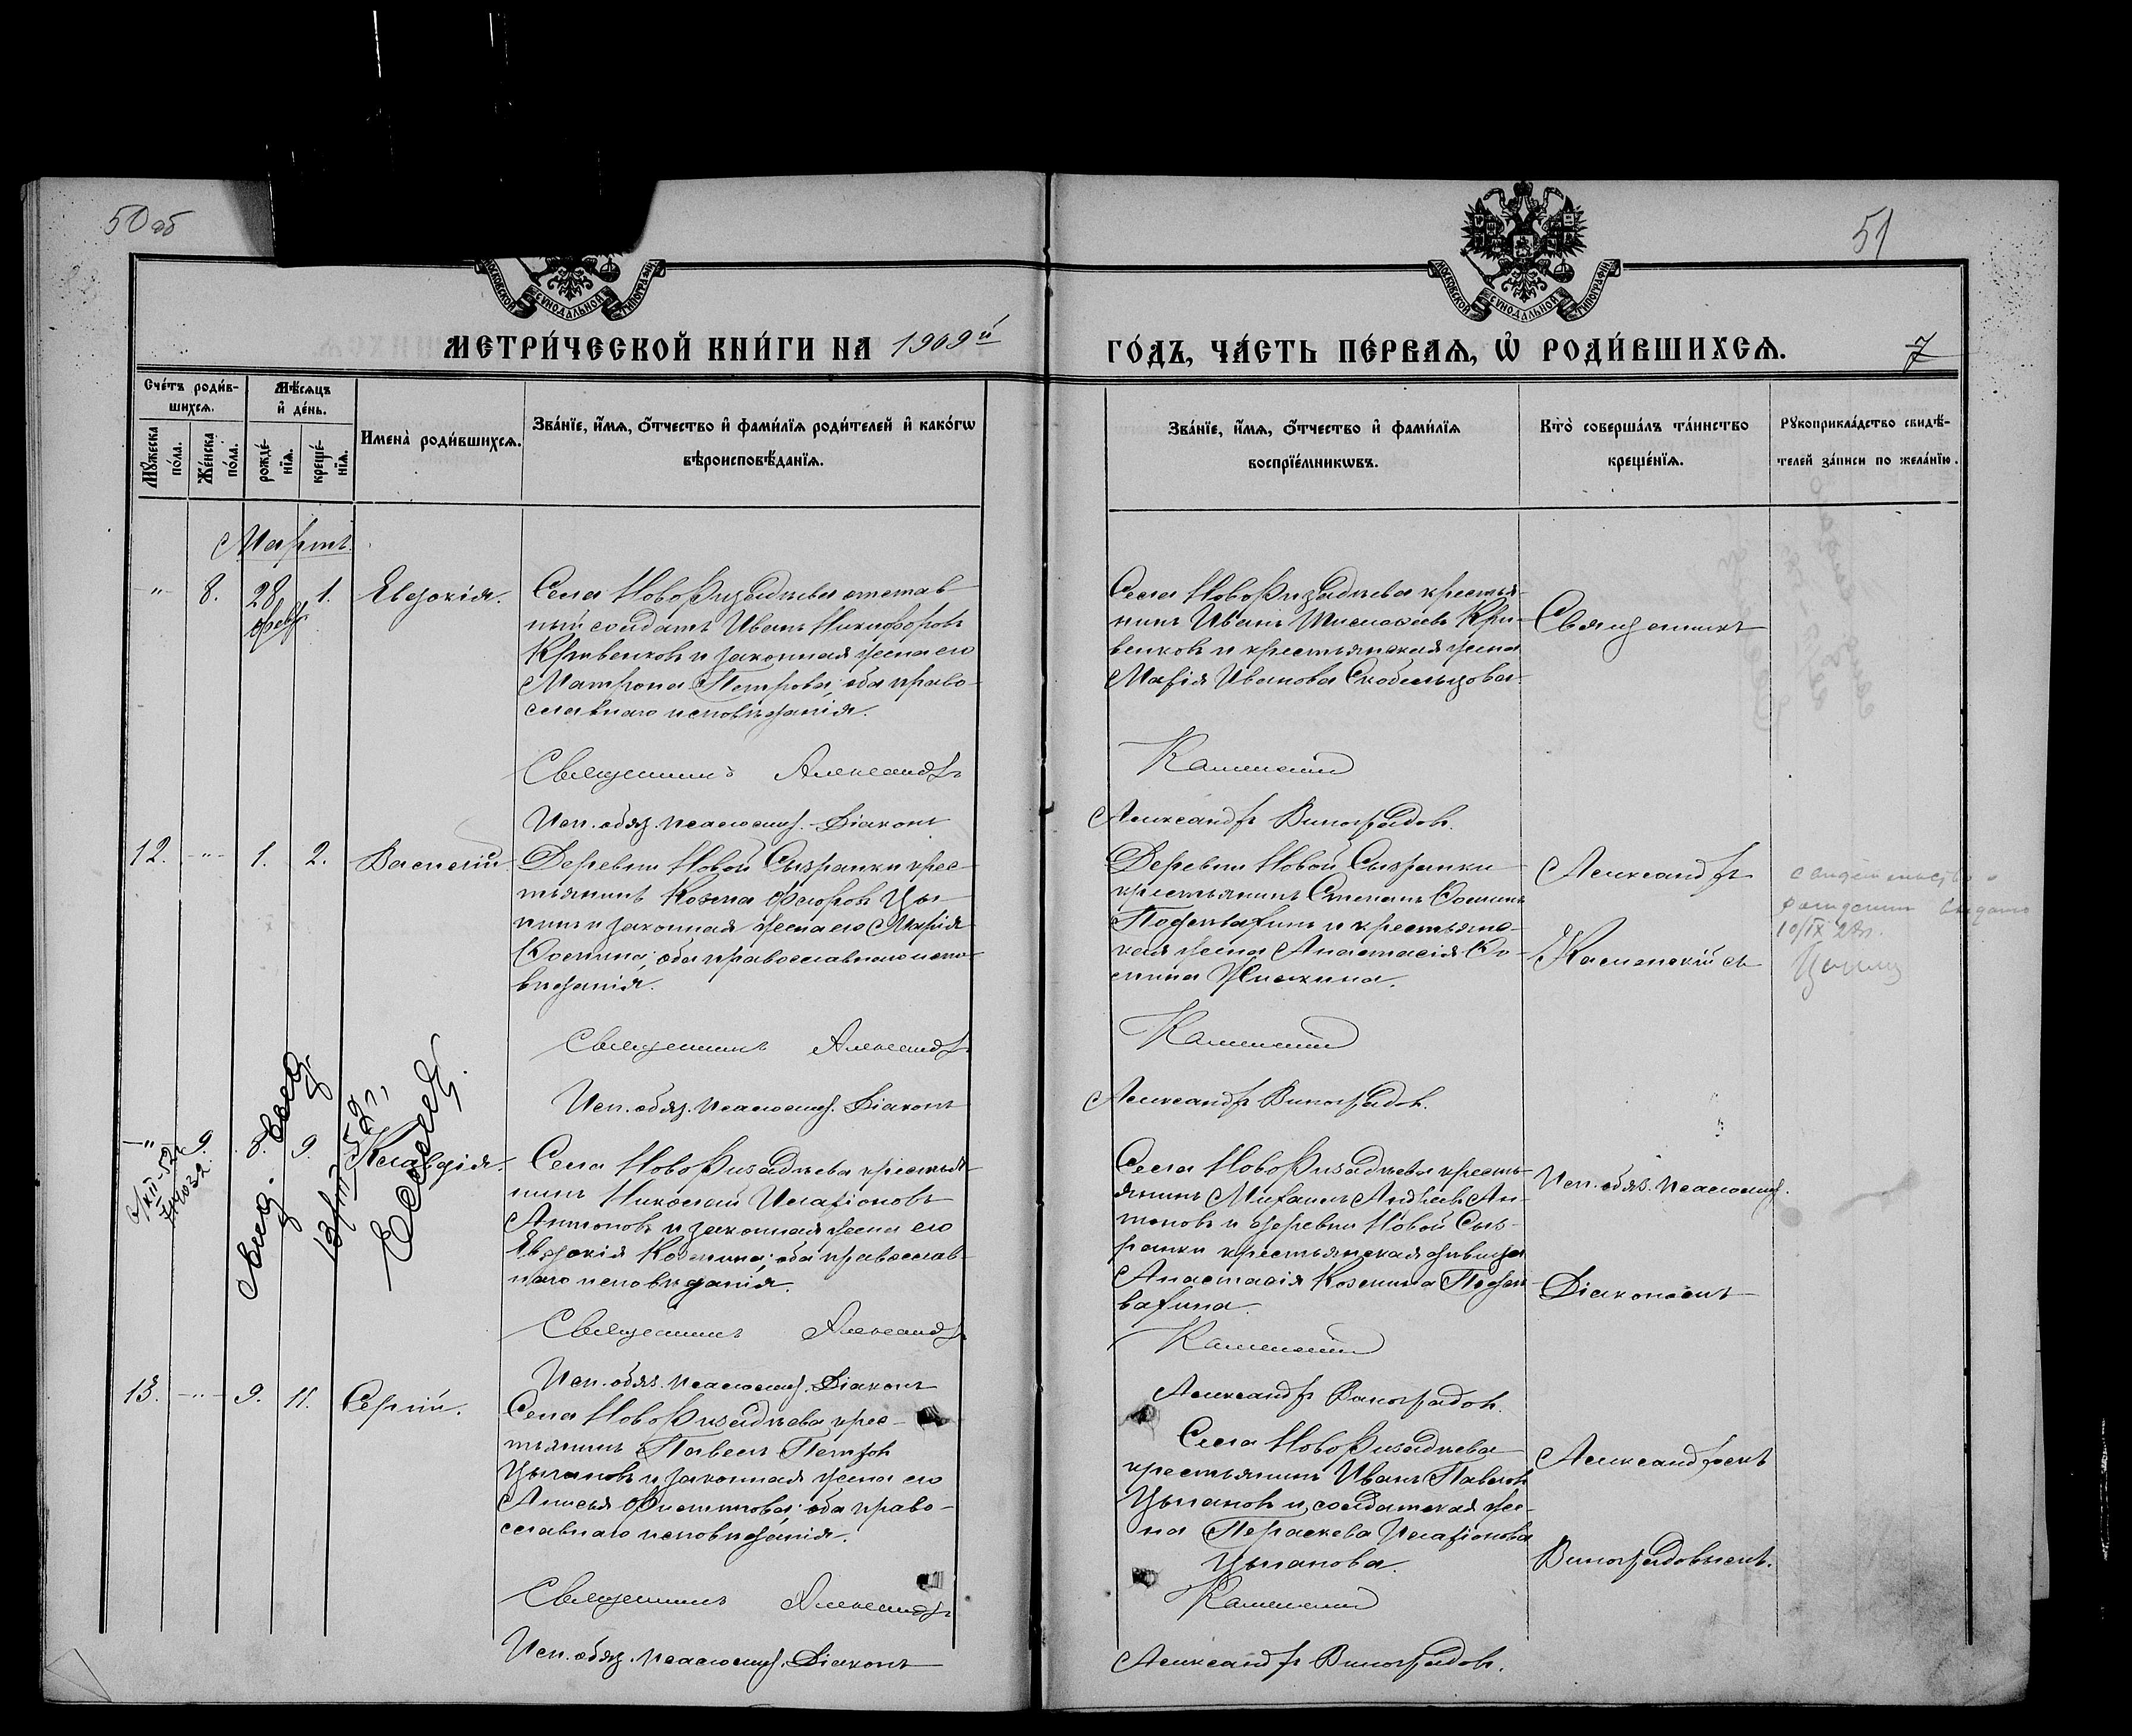 50 об
51
МОСКОВСКОЙ СѴНОДАЛЬНОЙ ТИПОГРАФІИ
МОСКОВСКОЙ СѴНОДАЛЬНОЙ ТИПОГРАФІИ
МЕТРИ́ЧЕСКОЙ КНИ́ГИ НА 1909й
ГО́ДЪ, ЧА́СТЬ ПЕ́РВАѦ, Ѡ҆ РОДИ́ВШИХСѦ.
7
Сче́тъ роди́в-
шихсѧ.
Мꙋ́жеска по́ла.
Же́нска по́ла.
Мѣ́сѧцъ
и҆ де́нь.
рожде́-
нїѧ.
креще́-
нїѧ.
Имена̀ роди́вшихсѧ.
Зва́нїе, и҆́мѧ, ѻ҆́тчество и҆ фами́лїѧ роди́телей и҆ како́гѡ
вѣроисповѣ́данїѧ.
Зва́нїе, и҆́мѧ, ѻ҆́тчество и҆ фами́лїѧ
воспрїе́мникѡвъ.
Кто̀ соверша́лъ та́инство
креще́нїѧ.
Рꙋкоприкла́дство свидѣ́-
телей за́писи по жела́нїю.
Мартъ.
" 8. 28 февр. 1. Евдокія.
Села Новофизадѣева отстав-
ный солдатъ Иванъ Никифоровъ
Кривенковъ и законная жена его
Матрона Петрова; оба право-
славнаго исповѣданія.
Священникъ Александръ
Исп. обяз. псаломщ. Діаконъ
Села Новофизадѣева крестья-
нинъ Иванъ Кри-
венковъ и крестьянская жена
Марія Иванова Скобельцова.
Каменскій
Александръ Виноградовъ.
Священникъ
12. " 1. 2. Василій.
Деревни Новой Сызранки крес-
тьянинъ Козма Федоровъ Цы-
и законная жена его Марія
оба православнаго испо-
вѣданія.
Священникъ Александръ
Исп. обяз. псаломщ. Діаконъ
Деревни Новой Сызранки
крестьянинъ Степанъ
и крестьянс-
кая жена Анастасія
Каменскій
Александръ Виноградовъ.
Александръ
Каменскій съ
свидетельство о
рождении выдано
10/IX 28г.
" 9. 8. 9. Клавдія.
13/III 52 г.
Села Новофизадѣева крестья-
нинъ Николай Иларіоновъ
Антоновъ и законная жена его
Евдокія Козмина; оба православ-
наго исповѣданія.
Священникъ Александръ
Исп. обяз. псаломщ. Діаконъ
Села Новофизадѣева кресть-
янинъ Михаилъ Андреевъ Ан-
тоновъ и деревни Новой Сыз-
ранки крестьянская дѣвица
Анастасія Козмина
Каменскій
Александръ Виноградовъ.
Исп. обяз. псаломщ.
Діакономъ
13. " 9. 11. Сергій.
Села Новофизадѣева крес-
тьянинъ Павелъ Петровъ
Цыгановъ и законная жена его
Анисья оба право-
славнаго исповѣданія.
Священникъ Александръ
Исп. обяз. псаломщ. Діаконъ
Села Новофизадѣева
крестьянинъ Иванъ Павловъ
Цыгановъ и солдатская же-
на Параскева Иларіонова
Цыганова.
Каменскій
Александръ Виноградовъ.
Александромъ
Виноградовымъ.